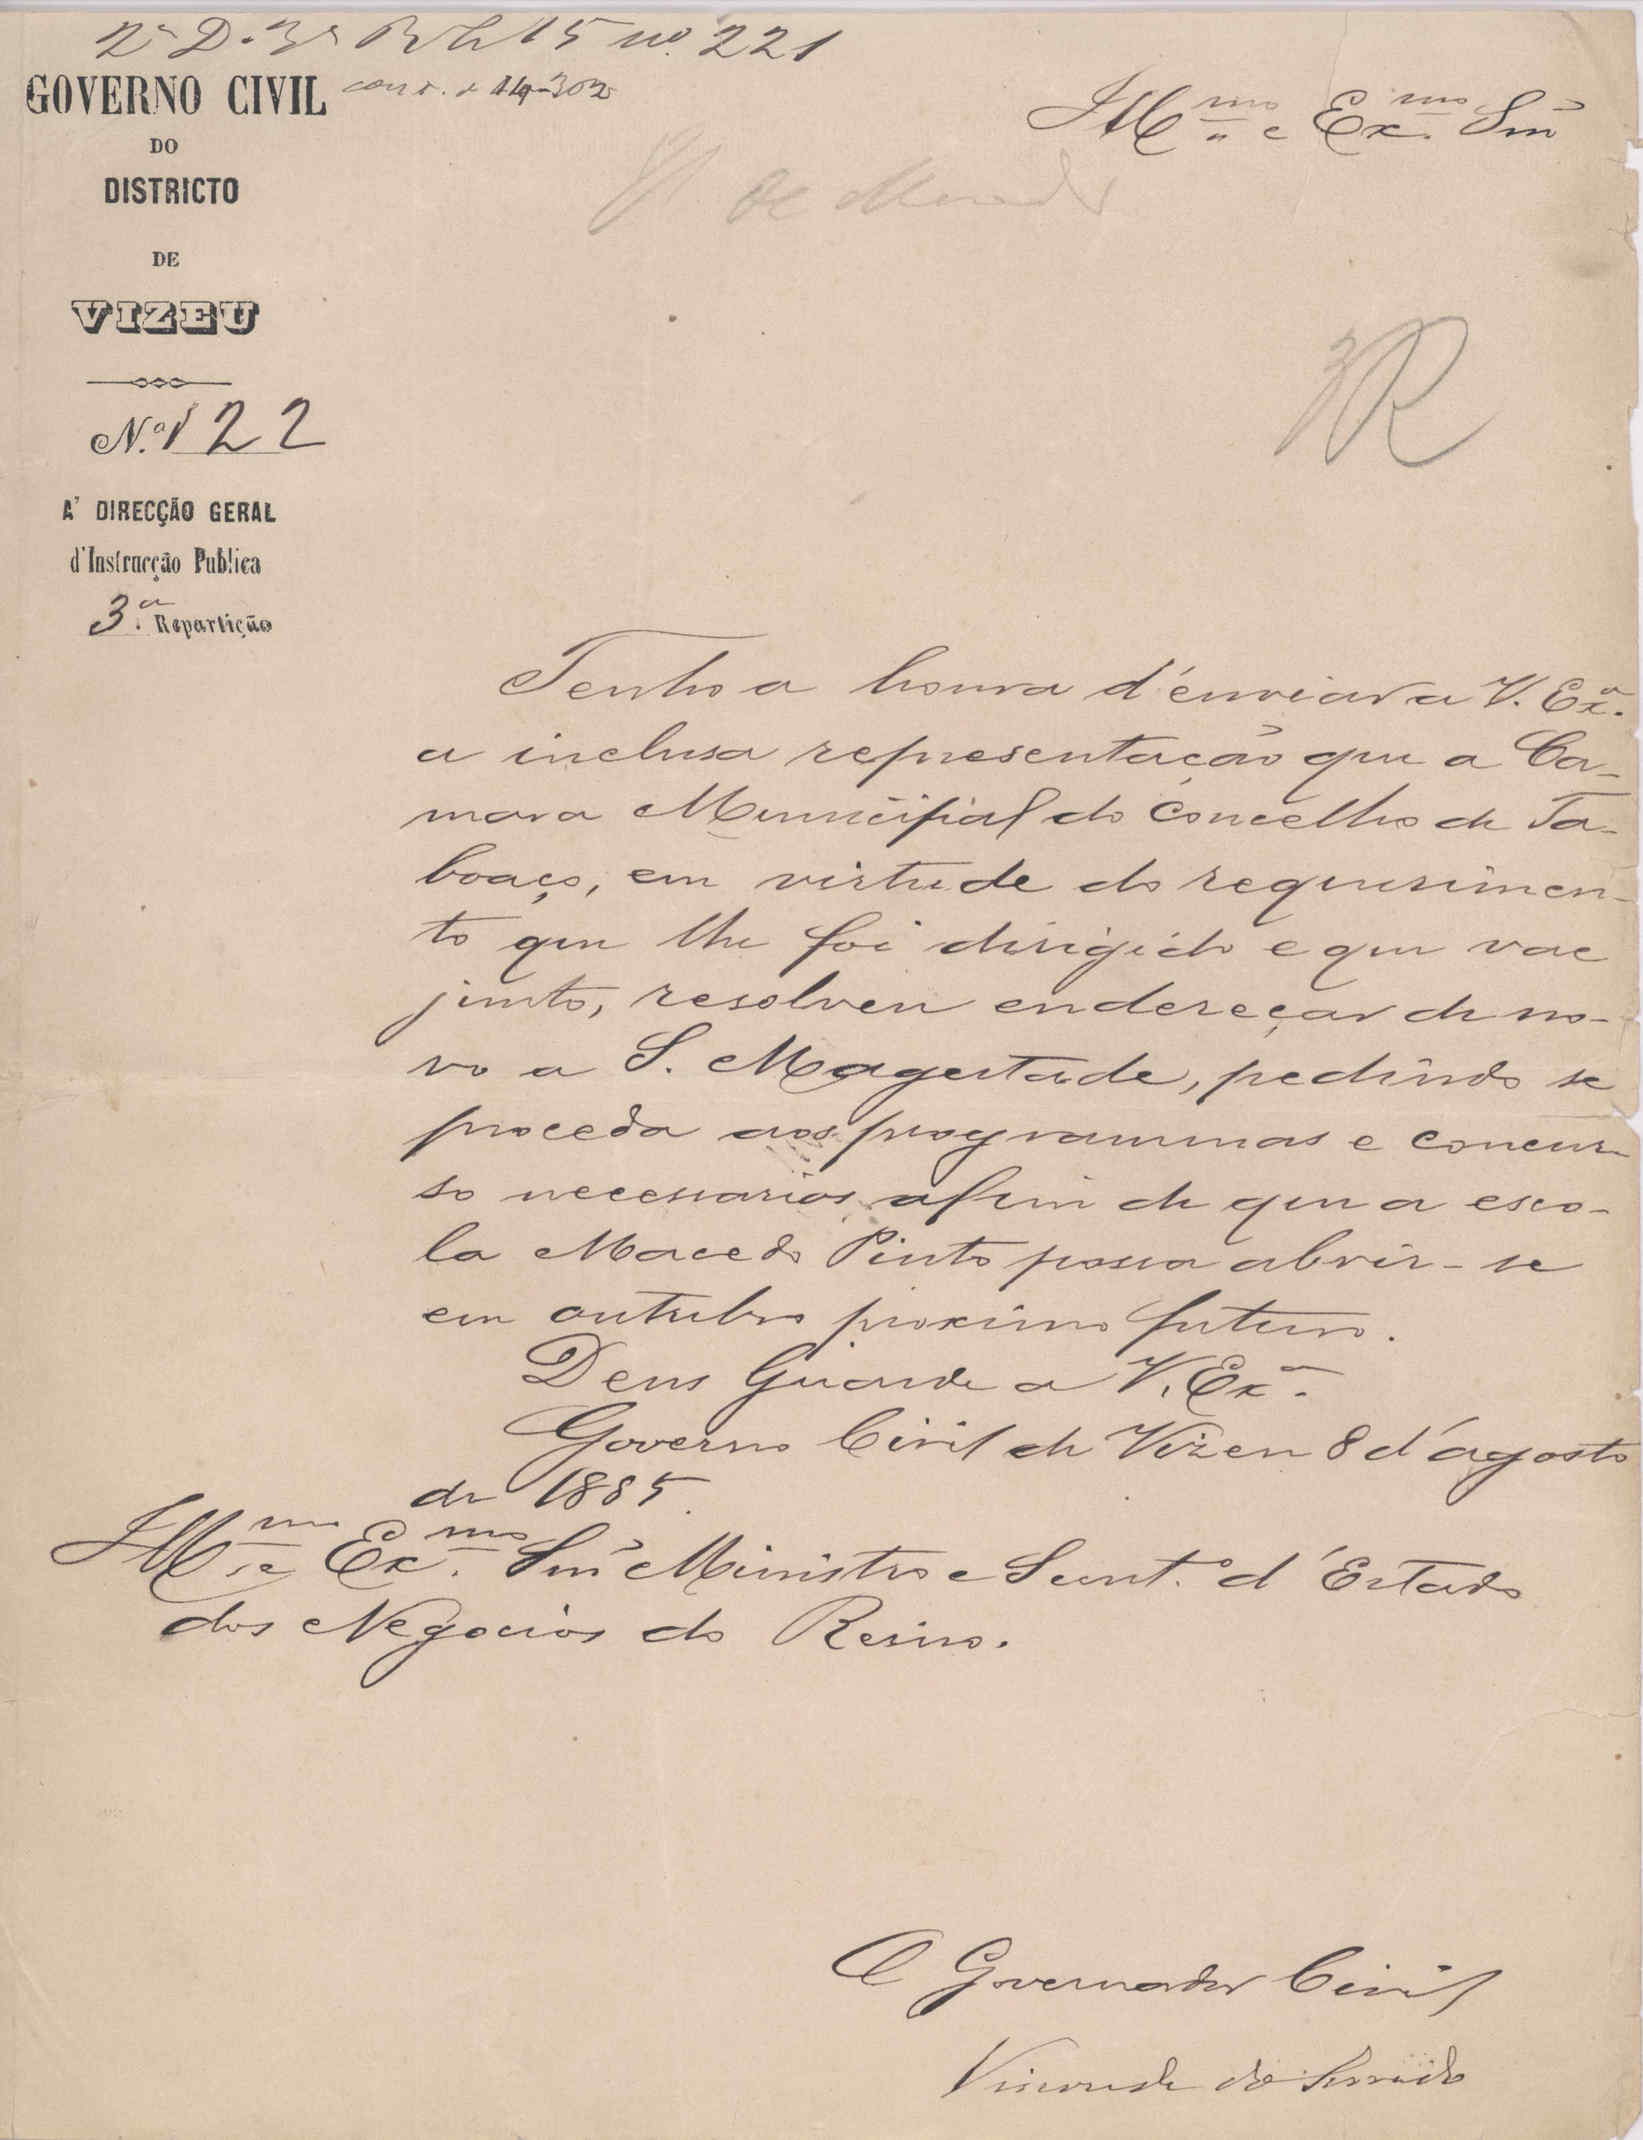 2ª D. 3ª R L 15 nº 221
GOVERNO CIVIL
14-302
DO
DISTRICTO
DE
VIZEU
N.º 122
A' DIRECÇÃO GERAL
d'Instrucção Publica
3.ª Repartição
Illmo e Exmo Snr
3R
Tenho a honra d'enviar a V. Exª.
a inclusa representação que a Ca-
mara Municipal do Concelho de Ta-
boaço, em virtude do requerimen-
to que lhe foi dirigido e que vae
junto, resolveu endereçar de no-
vo a S. Magestade, pedindo se
proceda aos programmas e concur-
so necessarios afim de que a esco-
la Macedo Pinto possa abrir-se
em outubro proximo futuro.
Deus Guarde a V. Exª.
Governo Civil de Vizeu 8 d'agosto
de 1885
Illmo e Exmo. Snr Ministro e Secret.º d'Estado
dos Negocios do Reino.
O Governador Civil
Visconde do Serrado